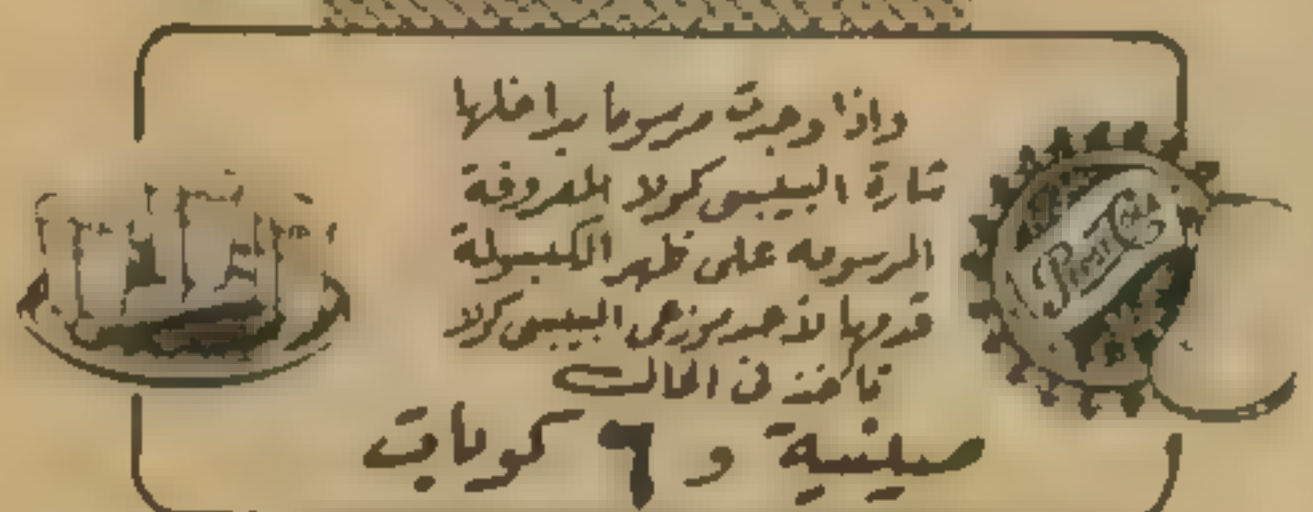 واذا وجدت مرسوما بداخلها
شارة البيبسى كولا المعروفة
المرسومه على ظهر الكبسولة
قدمها لأحد موزعى البيبسى كولا
تاخذ فى الحال
صينية و ٦ كوبات